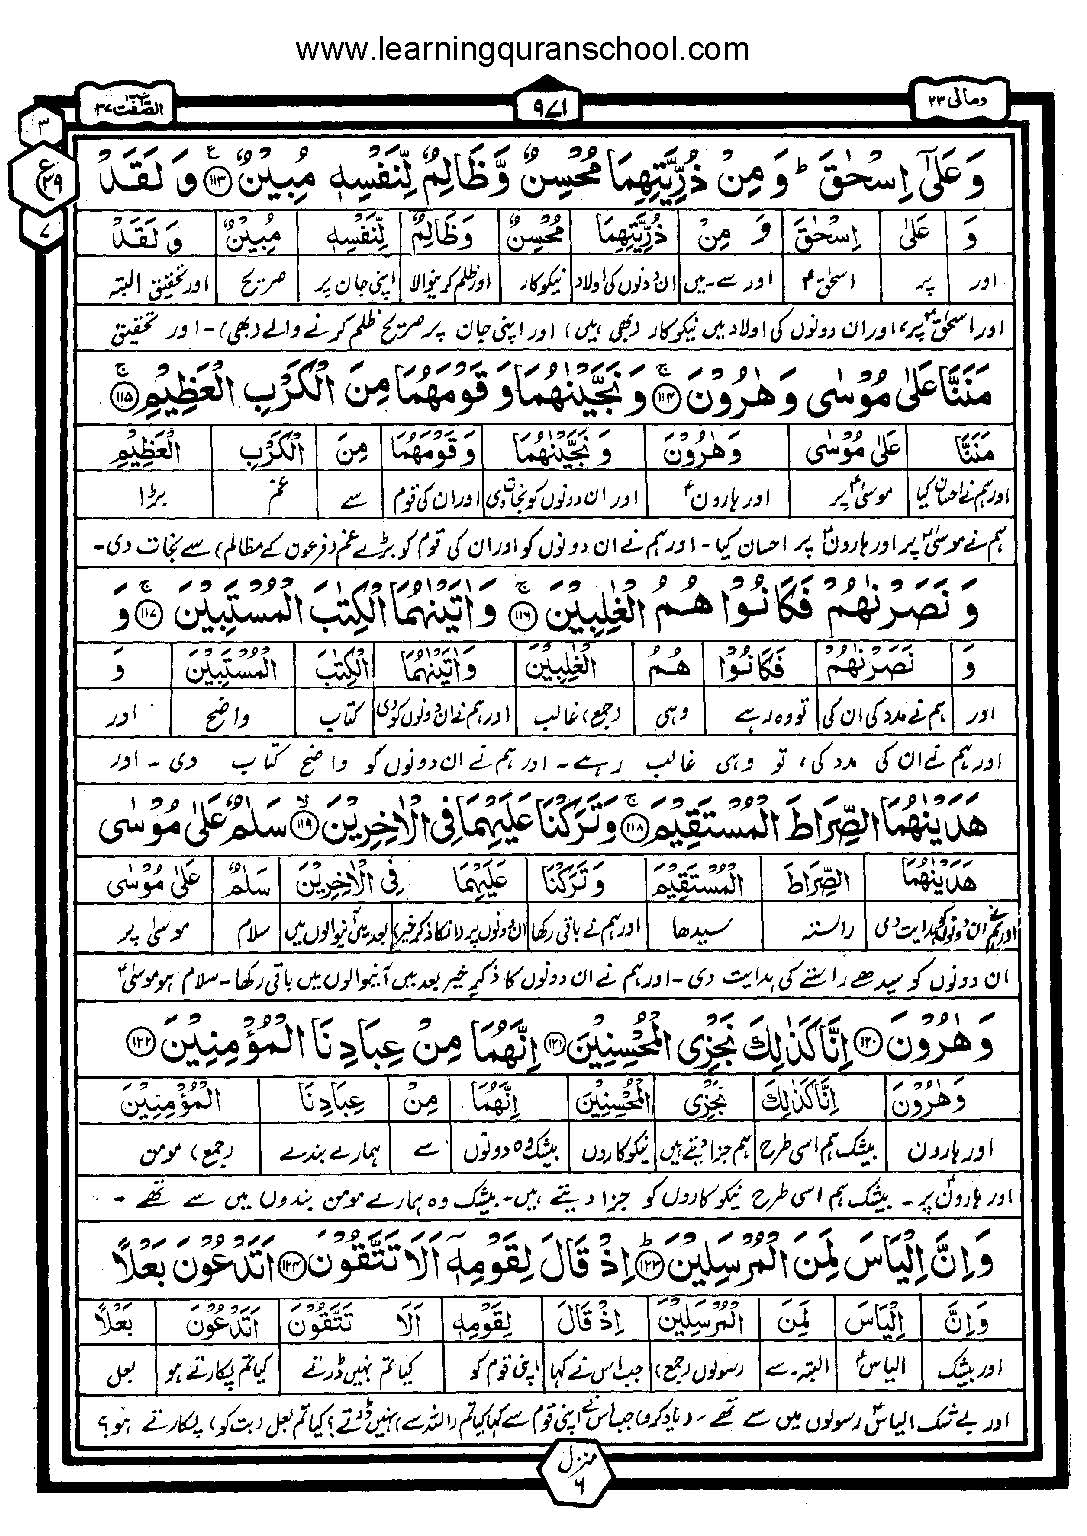 www.learningquranschool.com
الصّٰفّٰت ٣٧
٩٧١
ومالی ٢٣
٣
ع
٢٩
٧
وَعَلٰۤی اِسْحٰقَ ؕ وَ مِنْ ذُرِّیَّتِهِمَا مُحْسِنٌ وَّظَالِمٌ لِّنَفْسِهٖ مُبِیْنٌ ﴿١١٣﴾ وَ لَقَدْ
وَ عَلٰۤی اِسْحٰقَ وَ مِنْ ذُرِّیَّتِهِمَا مُحْسِنٌ وَّظَالِمٌ لِّنَفْسِهٖ مُبِیْنٌ وَ لَقَدْ
اور پر اسحٰقؑ اور سے-میں ان دونوں کی اولاد نیکوکار اور ظلم کرنیوالا اپنی جان پر صریح اور تحقیق البتہ
اور اسحٰقؑ پر، اور ان دونوں کی اولاد میں نیکوکار (بھی ہیں) اور اپنی جان پر صریح ظلم کرنے والے (بھی)- اور تحقیق
مَنَنَّا عَلٰی مُوْسٰی وَ هٰرُوْنَ ﴿١١٤﴾ وَ نَجَّیْنٰهُمَا وَ قَوْمَهُمَا مِنَ الْكَرْبِ الْعَظِیْمِ ﴿١١٥﴾
مَنَنَّا عَلٰی مُوْسٰی وَ هٰرُوْنَ وَ نَجَّیْنٰهُمَا وَ قَوْمَهُمَا مِنَ الْكَرْبِ الْعَظِیْمِ
اور ہم نے احسان کیا موسیٰؑ پر اور ہارونؑ اور ان دونوں کو نجات دی اور ان کی قوم سے غم بڑا
ہم نے موسیٰؑ پر اور ہارونؑ پر احسان کیا- اور ہم نے ان دونوں کو اور ان کی قوم کو بڑے غم (فرعون کے مظالم) سے نجات دی-
وَ نَصَرْنٰهُمْ فَكَانُوْا هُمُ الْغٰلِبِیْنَ ﴿١١٦﴾ وَ اٰتَیْنٰهُمَا الْكِتٰبَ الْمُسْتَبِیْنَ ﴿١١٧﴾ وَ
وَ نَصَرْنٰهُمْ فَكَانُوْا هُمُ الْغٰلِبِیْنَ وَ اٰتَیْنٰهُمَا الْكِتٰبَ الْمُسْتَبِیْنَ وَ
اور ہم نے مدد کی ان کی تو وہ رہے وہی (جمع) غالب اور ہم نے ان دونوں کو دی کتاب واضح اور
اور ہم نے ان کی مدد کی، تو وہی غالب رہے- اور ہم نے ان دونوں کو واضح کتاب دی- اور
هَدَیْنٰهُمَا الصِّرَاطَ الْمُسْتَقِیْمَ ﴿١١٨﴾ وَ تَرَكْنَا عَلَیْهِمَا فِی الْاٰخِرِیْنَ ﴿١١٩﴾ سَلٰمٌ عَلٰی مُوْسٰی
هَدَیْنٰهُمَا الصِّرَاطَ الْمُسْتَقِیْمَ وَ تَرَكْنَا عَلَیْهِمَا فِی الْاٰخِرِیْنَ سَلٰمٌ عَلٰی مُوْسٰی
اور ہم نے ان دونوں کو ہدایت دی راستہ سیدھا اور ہم نے باقی رکھا ان دونوں پر (انکا ذکر خیر) بعد میں آنیوالوں میں سلام موسیٰ پر
ان دونوں کو سیدھے راستے کی ہدایت دی- اور ہم نے ان دونوں کا ذکرِ خیر بعد میں آنیوالوں میں باقی رکھا- سلام ہو موسیٰؑ
وَ هٰرُوْنَ ﴿١٢٠﴾ اِنَّا كَذٰلِكَ نَجْزِی الْمُحْسِنِیْنَ ﴿١٢١﴾ اِنَّهُمَا مِنْ عِبَادِنَا الْمُؤْمِنِیْنَ ﴿١٢٢﴾
وَ هٰرُوْنَ اِنَّا كَذٰلِكَ نَجْزِی الْمُحْسِنِیْنَ اِنَّهُمَا مِنْ عِبَادِنَا الْمُؤْمِنِیْنَ
اور ہارون بیشک ہم اسی طرح ہم جزا دیتے ہیں نیکوکاروں بیشک وہ دونوں سے ہمارے بندے (جمع) مومن
اور ہارونؑ پر- بیشک ہم اسی طرح نیکوکاروں کو جزا دیتے ہیں- بیشک وہ ہمارے مومن بندوں میں سے تھے-
وَ اِنَّ اِلْیَاسَ لَمِنَ الْمُرْسَلِیْنَ ﴿١٢٣﴾ اِذْ قَالَ لِقَوْمِهٖۤ اَلَا تَتَّقُوْنَ ﴿١٢٤﴾ اَتَدْعُوْنَ بَعْلًا
وَ اِنَّ اِلْیَاسَ لَمِنَ الْمُرْسَلِیْنَ اِذْ قَالَ لِقَوْمِهٖۤ اَلَا تَتَّقُوْنَ اَتَدْعُوْنَ بَعْلًا
اور بیشک الیاسؑ البتہ-سے رسولوں (جمع) جب اس نے کہا اپنی قوم کو کیا تم نہیں ڈرتے کیا تم پکارتے ہو بعل
اور بے شک الیاسؑ رسولوں میں سے تھے- (یاد کرو) جب اس نے اپنی قوم سے کہا کیا تم (اللہ سے) نہیں ڈرتے؟ کیا تم بعل (بت کو) پکارتے ہو؟
منزل ٦